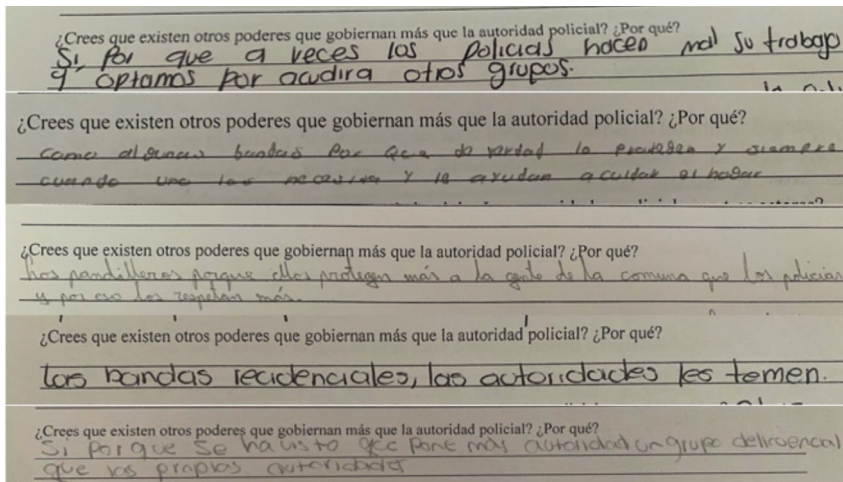 ¿Crees que existen otros poderes que gobiernan más que la autoridad policial? ¿Por qué?
Si, por que a veces los policias hacen mal su trabajo
y optamos por acudir a otros grupos.
¿Crees que existen otros poderes que gobiernan más que la autoridad policial? ¿Por qué?
como algunas bandas por que de verdad lo protegen y siempre
cuando uno los necesita y le ayudan a cuidar el hogar
¿Crees que existen otros poderes que gobiernan más que la autoridad policial? ¿Por qué?
Los pandilleros porque ellos protegen más a la gente de la comuna que los policias
y por eso los respetan más.
¿Crees que existen otros poderes que gobiernan más que la autoridad policial? ¿Por qué?
Las bandas recidenciales, las autoridades les temen.
¿Crees que existen otros poderes que gobiernan más que la autoridad policial? ¿Por qué?
Si porque se ha visto que pone más autoridad un grupo delincuencial
que las propias autoridades